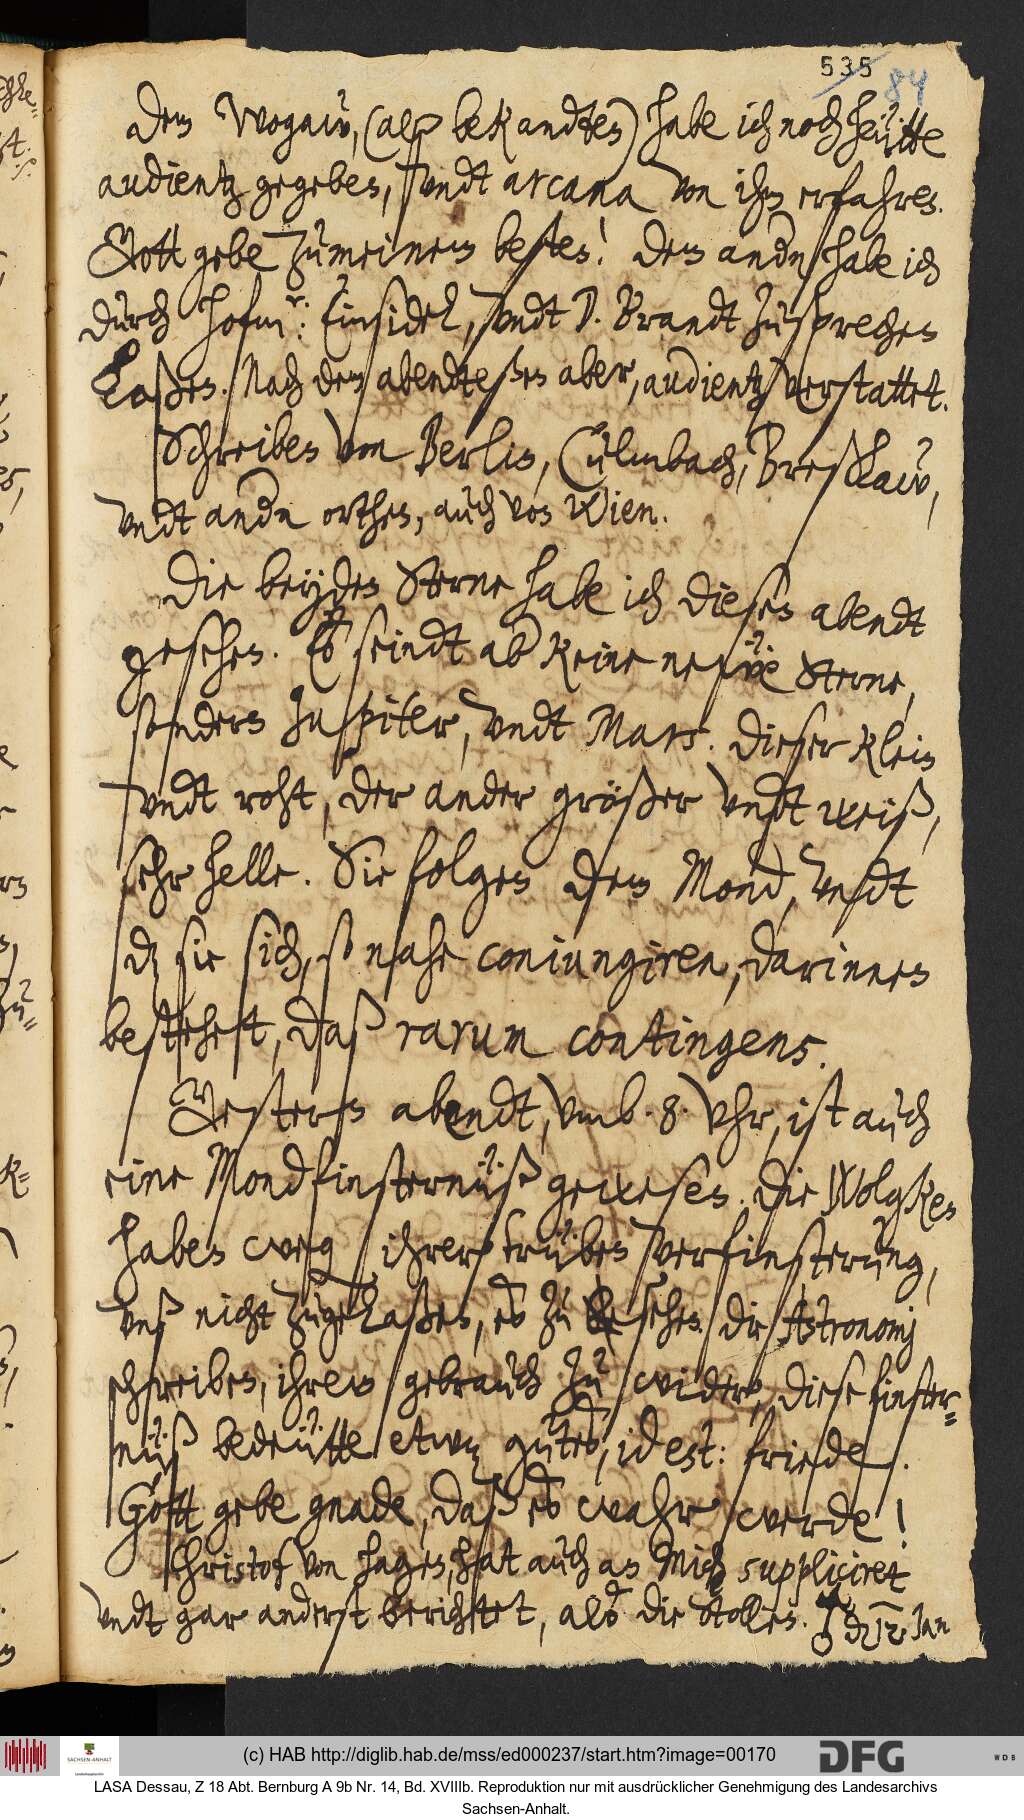 535 84
Dem Wogaw, (alß bekandten) habe ich noch heütte
audientz gegeben, undt arcana von ihm erfahren.
Gott gebe zu meinem besten! Dem andern habe ich
durch Hofmr: Einsidel, undt D. Brandt zusprechen
Laßen. Nach dem abendteßen aber, audientz verstattet.
Schreiben von Berlin, Culmbach, Breßlaw,
undt andern orthen, auch von Wien.
Die beyden Sterne habe ich diesen abendt
gesehen. Es seindt aber keine newe Sterne,
sondern Jupiter, undt Mars. Dieser klein
undt roht, der ander größer undt weiß,
sehr helle. Sie folgen dem Mond, undt
daz sie sich, so nahe coniungiren, darinnen
besteheht, daß rarum contingens.
Gestern abendt, umb .8. Uhr, ist auch
eine Mondfinsternüß gewesen. Die Wolgken
haben aber ihrer trüben verfinsterung,
unß nicht zugelaßen, es zu sehen. die Astronomj
schreiben, ihrem gebrauch zu wider, diese finster-
nüß bedeütte etwaz gutes, id est: friede.
Gott gebe gnade, daß es wahr werde!
Christof von Hagen, hat auch an Mich suppliciret
undt gar anderst berichtet, als die Stollen. ♂ den 12. Jan
(c) HAB http://diglib.hab.de/mss/ed000237/start.htm?image=00170
DFG
WDB
SACHSEN-ANHALT
LASA Dessau, Z 18 Abt. Bernburg A 9b Nr. 14, Bd. XVIIIb. Reproduktion nur mit ausdrücklicher Genehmigung des Landesarchivs
Sachsen-Anhalt.